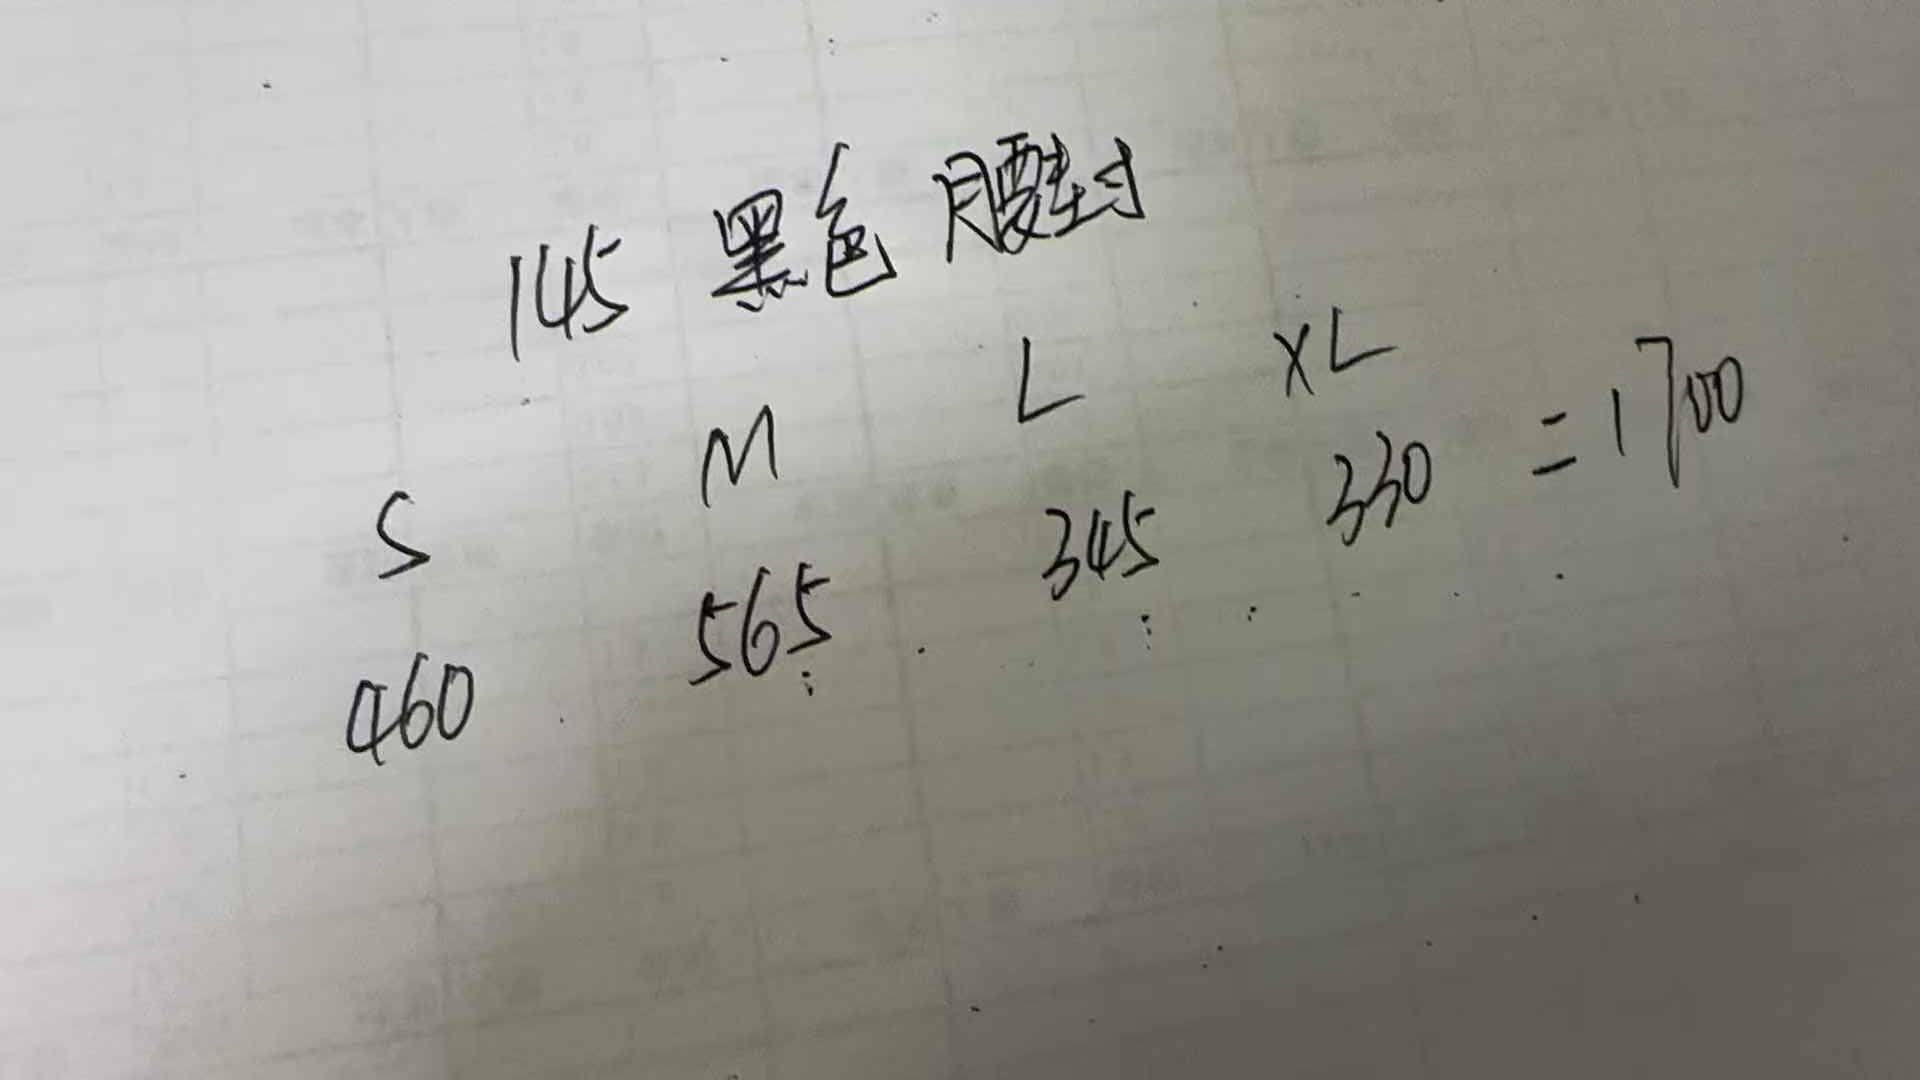 145 黑色 腰封
S M L XL
460 565 345 330 =1700